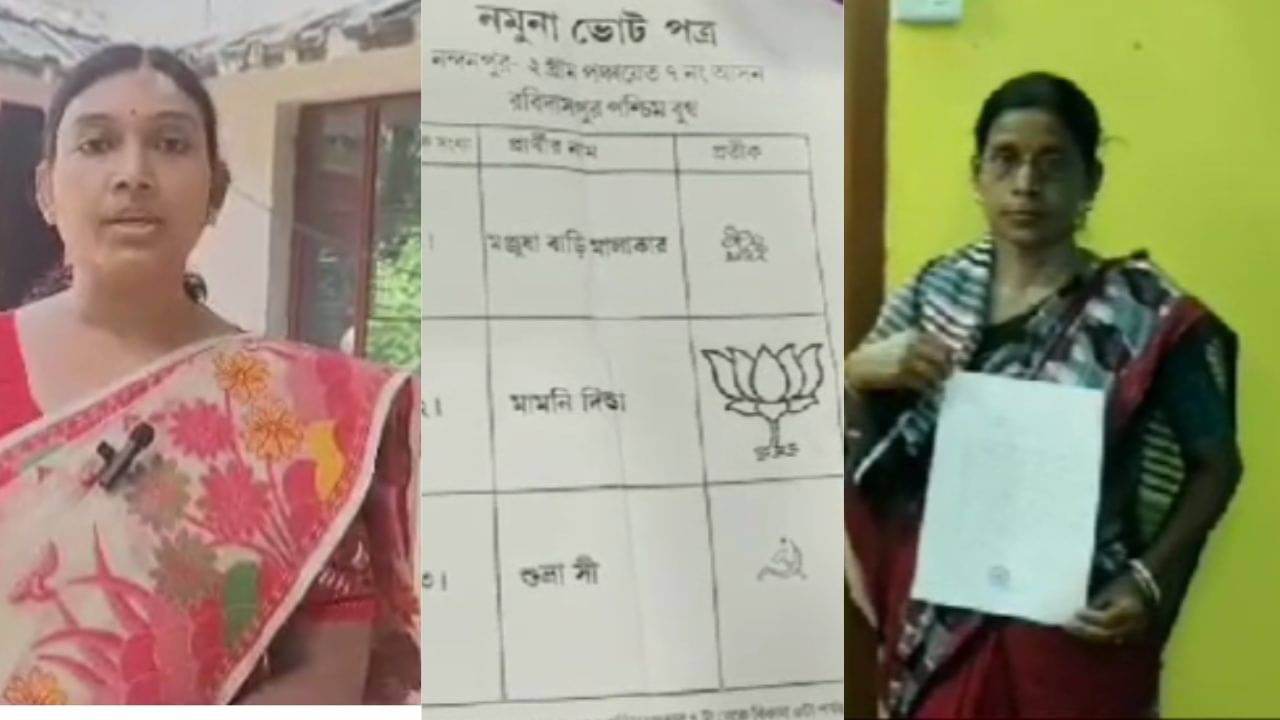 নমুনা ভোট পত্র
নন্দনপুর- ২ গ্রাম পঞ্চায়েত ৭ নং আসন
রবিদাসপুর পশ্চিম বুথ
সংখ্যা প্রার্থীর নাম প্রতীক
১। মঞ্জুষা বাড়ি মালাকার
২। মামনি দিন্ডা
৩। শুভ্রা সী